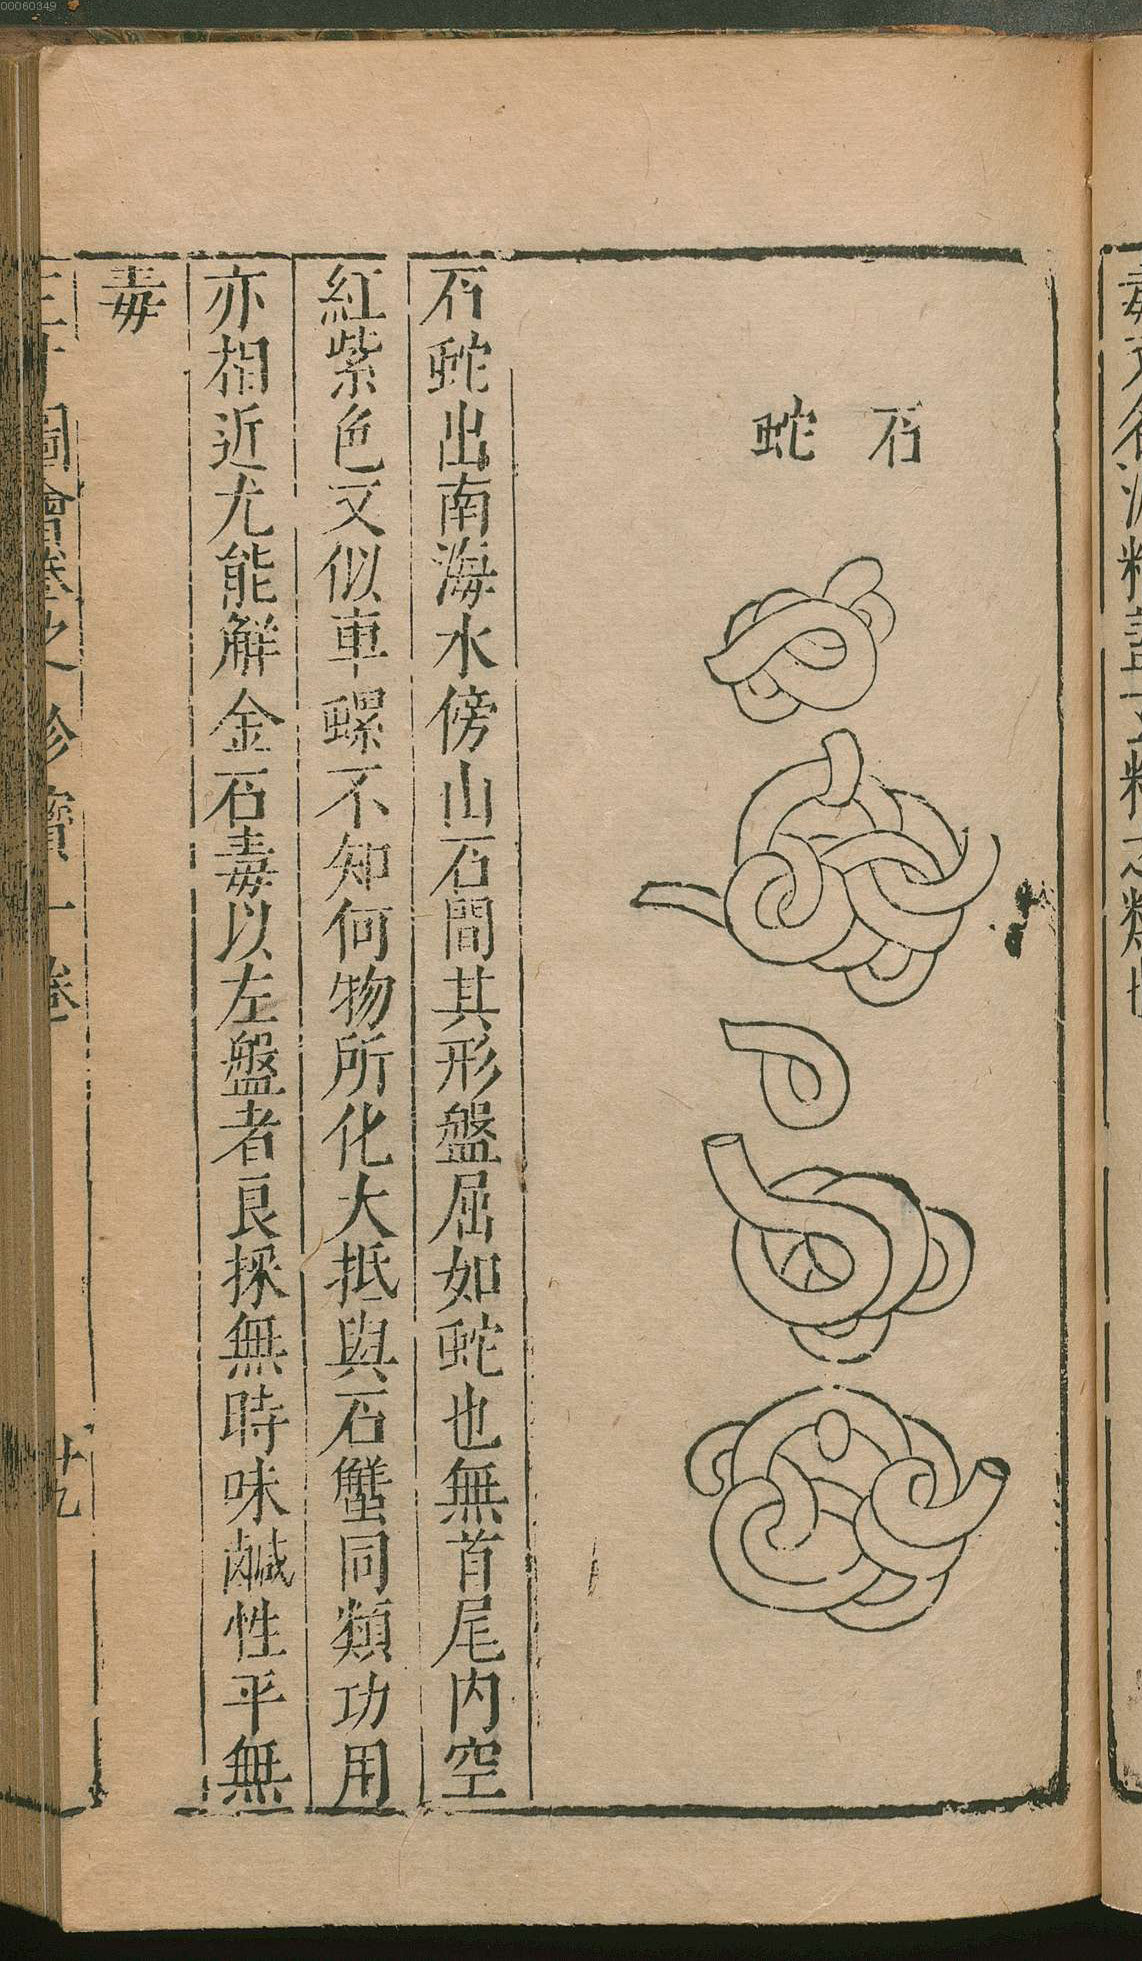 00060349
石蛇
石蛇出南海水傍山石間其形盤屈如蛇也無首尾内空
紅紫色文似車螺不知何物所化大抵與石蟹同類功用
亦相近尤能解金石毒以左盤者良採無時味鹹性平無
毒
三才圖會卷之 珍寶一卷
十九